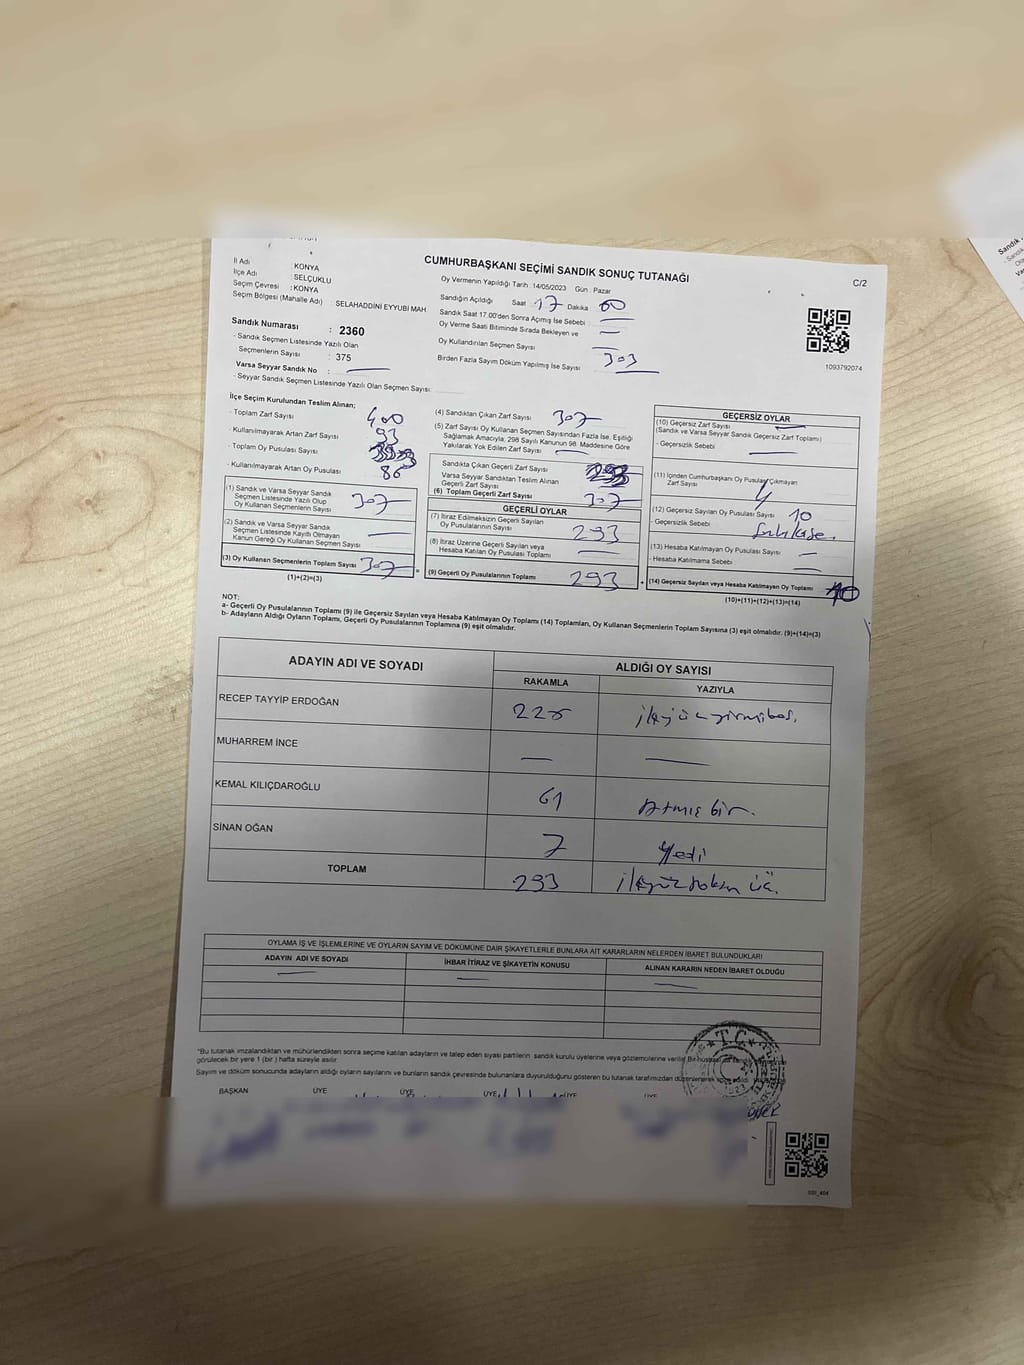 CUMHURBAŞKANI SEÇİMİ SANDIK SONUÇ TUTANAĞI
C/2
İl Adı : KONYA
İlçe Adı : SELÇUKLU
Seçim Çevresi : KONYA
Seçim Bölgesi (Mahalle Adı) : SELAHADDİNİ EYYUBİ MAH
Sandık Numarası : 2360
- Sandık Seçmen Listesinde Yazılı Olan
Seçmenlerin Sayısı : 375
Varsa Seyyar Sandık No :
- Seyyar Sandık Seçmen Listesinde Yazılı Olan Seçmen Sayısı:
Oy Vermenin Yapıldığı Tarih : 14/05/2023 Gün : Pazar
Sandığın Açıldığı Saat 17 Dakika 00
Sandık Saat 17.00'den Sonra Açmış İse Sebebi :
Oy Verme Saati Bitiminde Sırada Bekleyen ve
Oy Kullandırılan Seçmen Sayısı
Birden Fazla Sayım Döküm Yapılmış İse Sayısı 303
1093792074
İlçe Seçim Kurulundan Teslim Alınan;
- Toplam Zarf Sayısı 400
- Kullanılmayarak Artan Zarf Sayısı 93
- Toplam Oy Pusulası Sayısı
- Kullanılmayarak Artan Oy Pusulası 86
(1) Sandık ve Varsa Seyyar Sandık
Seçmen Listesinde Yazılı Olup
Oy Kullanan Seçmenlerin Sayısı 307
(2) Sandık ve Varsa Seyyar Sandık
Seçmen Listesinde Kayıtlı Olmayan
Kanun Gereği Oy Kullanan Seçmen Sayısı
(3) Oy Kullanan Seçmenlerin Toplam Sayısı 307
(1)+(2)=(3)
(4) Sandıktan Çıkan Zarf Sayısı 307
(5) Zarf Sayısı Oy Kullanan Seçmen Sayısından Fazla İse, Eşitliği
Sağlamak Amacıyla, 298 Sayılı Kanunun 98. Maddesine Göre
Yakılarak Yok Edilen Zarf Sayısı
Sandıkta Çıkan Geçerli Zarf Sayısı
Varsa Seyyar Sandıktan Teslim Alınan
Geçerli Zarf Sayısı
(6) Toplam Geçerli Zarf Sayısı 307
GEÇERLİ OYLAR
(7) İtiraz Edilmeksizin Geçerli Sayılan
Oy Pusulalarının Sayısı 293
(8) İtiraz Üzerine Geçerli Sayılan veya
Hesaba Katılan Oy Pusulası Toplamı
(9) Geçerli Oy Pusulalarının Toplamı 293
GEÇERSİZ OYLAR
(10) Geçersiz Zarf Sayısı
(Sandık ve Varsa Seyyar Sandık Geçersiz Zarf Toplamı)
- Geçersizlik Sebebi
(11) İçinden Cumhurbaşkanı Oy Pusulası Çıkmayan
Zarf Sayısı 4
(12) Geçersiz Sayılan Oy Pusulası Sayısı 10
- Geçersizlik Sebebi
(13) Hesaba Katılmayan Oy Pusulası Sayısı
- Hesaba Katılmama Sebebi
(14) Geçersiz Sayılan veya Hesaba Katılmayan Oy Toplamı 10
(10)+(11)+(12)+(13)=(14)
NOT:
a- Geçerli Oy Pusulalarının Toplamı (9) ile Geçersiz Sayılan veya Hesaba Katılmayan Oy Toplamı (14) Toplamları, Oy Kullanan Seçmenlerin Toplam Sayısına (3) eşit olmalıdır. (9)+(14)=(3)
b- Adayların Aldığı Oyların Toplamı, Geçerli Oy Pusulalarının Toplamına (9) eşit olmalıdır.
ADAYIN ADI VE SOYADI
ALDIĞI OY SAYISI
RAKAMLA YAZIYLA
RECEP TAYYİP ERDOĞAN 225 ikiyüz yirmibeş.
MUHARREM İNCE
KEMAL KILIÇDAROĞLU 61 Atmış bir.
SİNAN OĞAN 7 Yedi
TOPLAM 293
OYLAMA İŞ VE İŞLEMLERİNE VE OYLARIN SAYIM VE DÖKÜMÜNE DAİR ŞİKAYETLERLE BUNLARA AİT KARARLARIN NELERDEN İBARET BULUNDUKLARI
ADAYIN ADI VE SOYADI İHBAR İTİRAZ VE ŞİKAYETİN KONUSU ALINAN KARARIN NEDEN İBARET OLDUĞU
*Bu tutanak imzalandıktan ve mühürlendikten sonra seçime katılan adayların ve talep eden siyasi partilerin sandık kurulu üyelerine veya gözlemcilerine verilir.
görülecek bir yere 1 (bir) hafta süreyle asılır.
Sayım ve döküm sonucunda adayların aldığı oyların sayılarını ve bunların sandık çevresinde bulunanlara duyurulduğunu gösteren bu tutanak tarafımızdan düzenlenerek
BAŞKAN ÜYE ÜYE ÜYE ÜYE ÜYE
T.C.